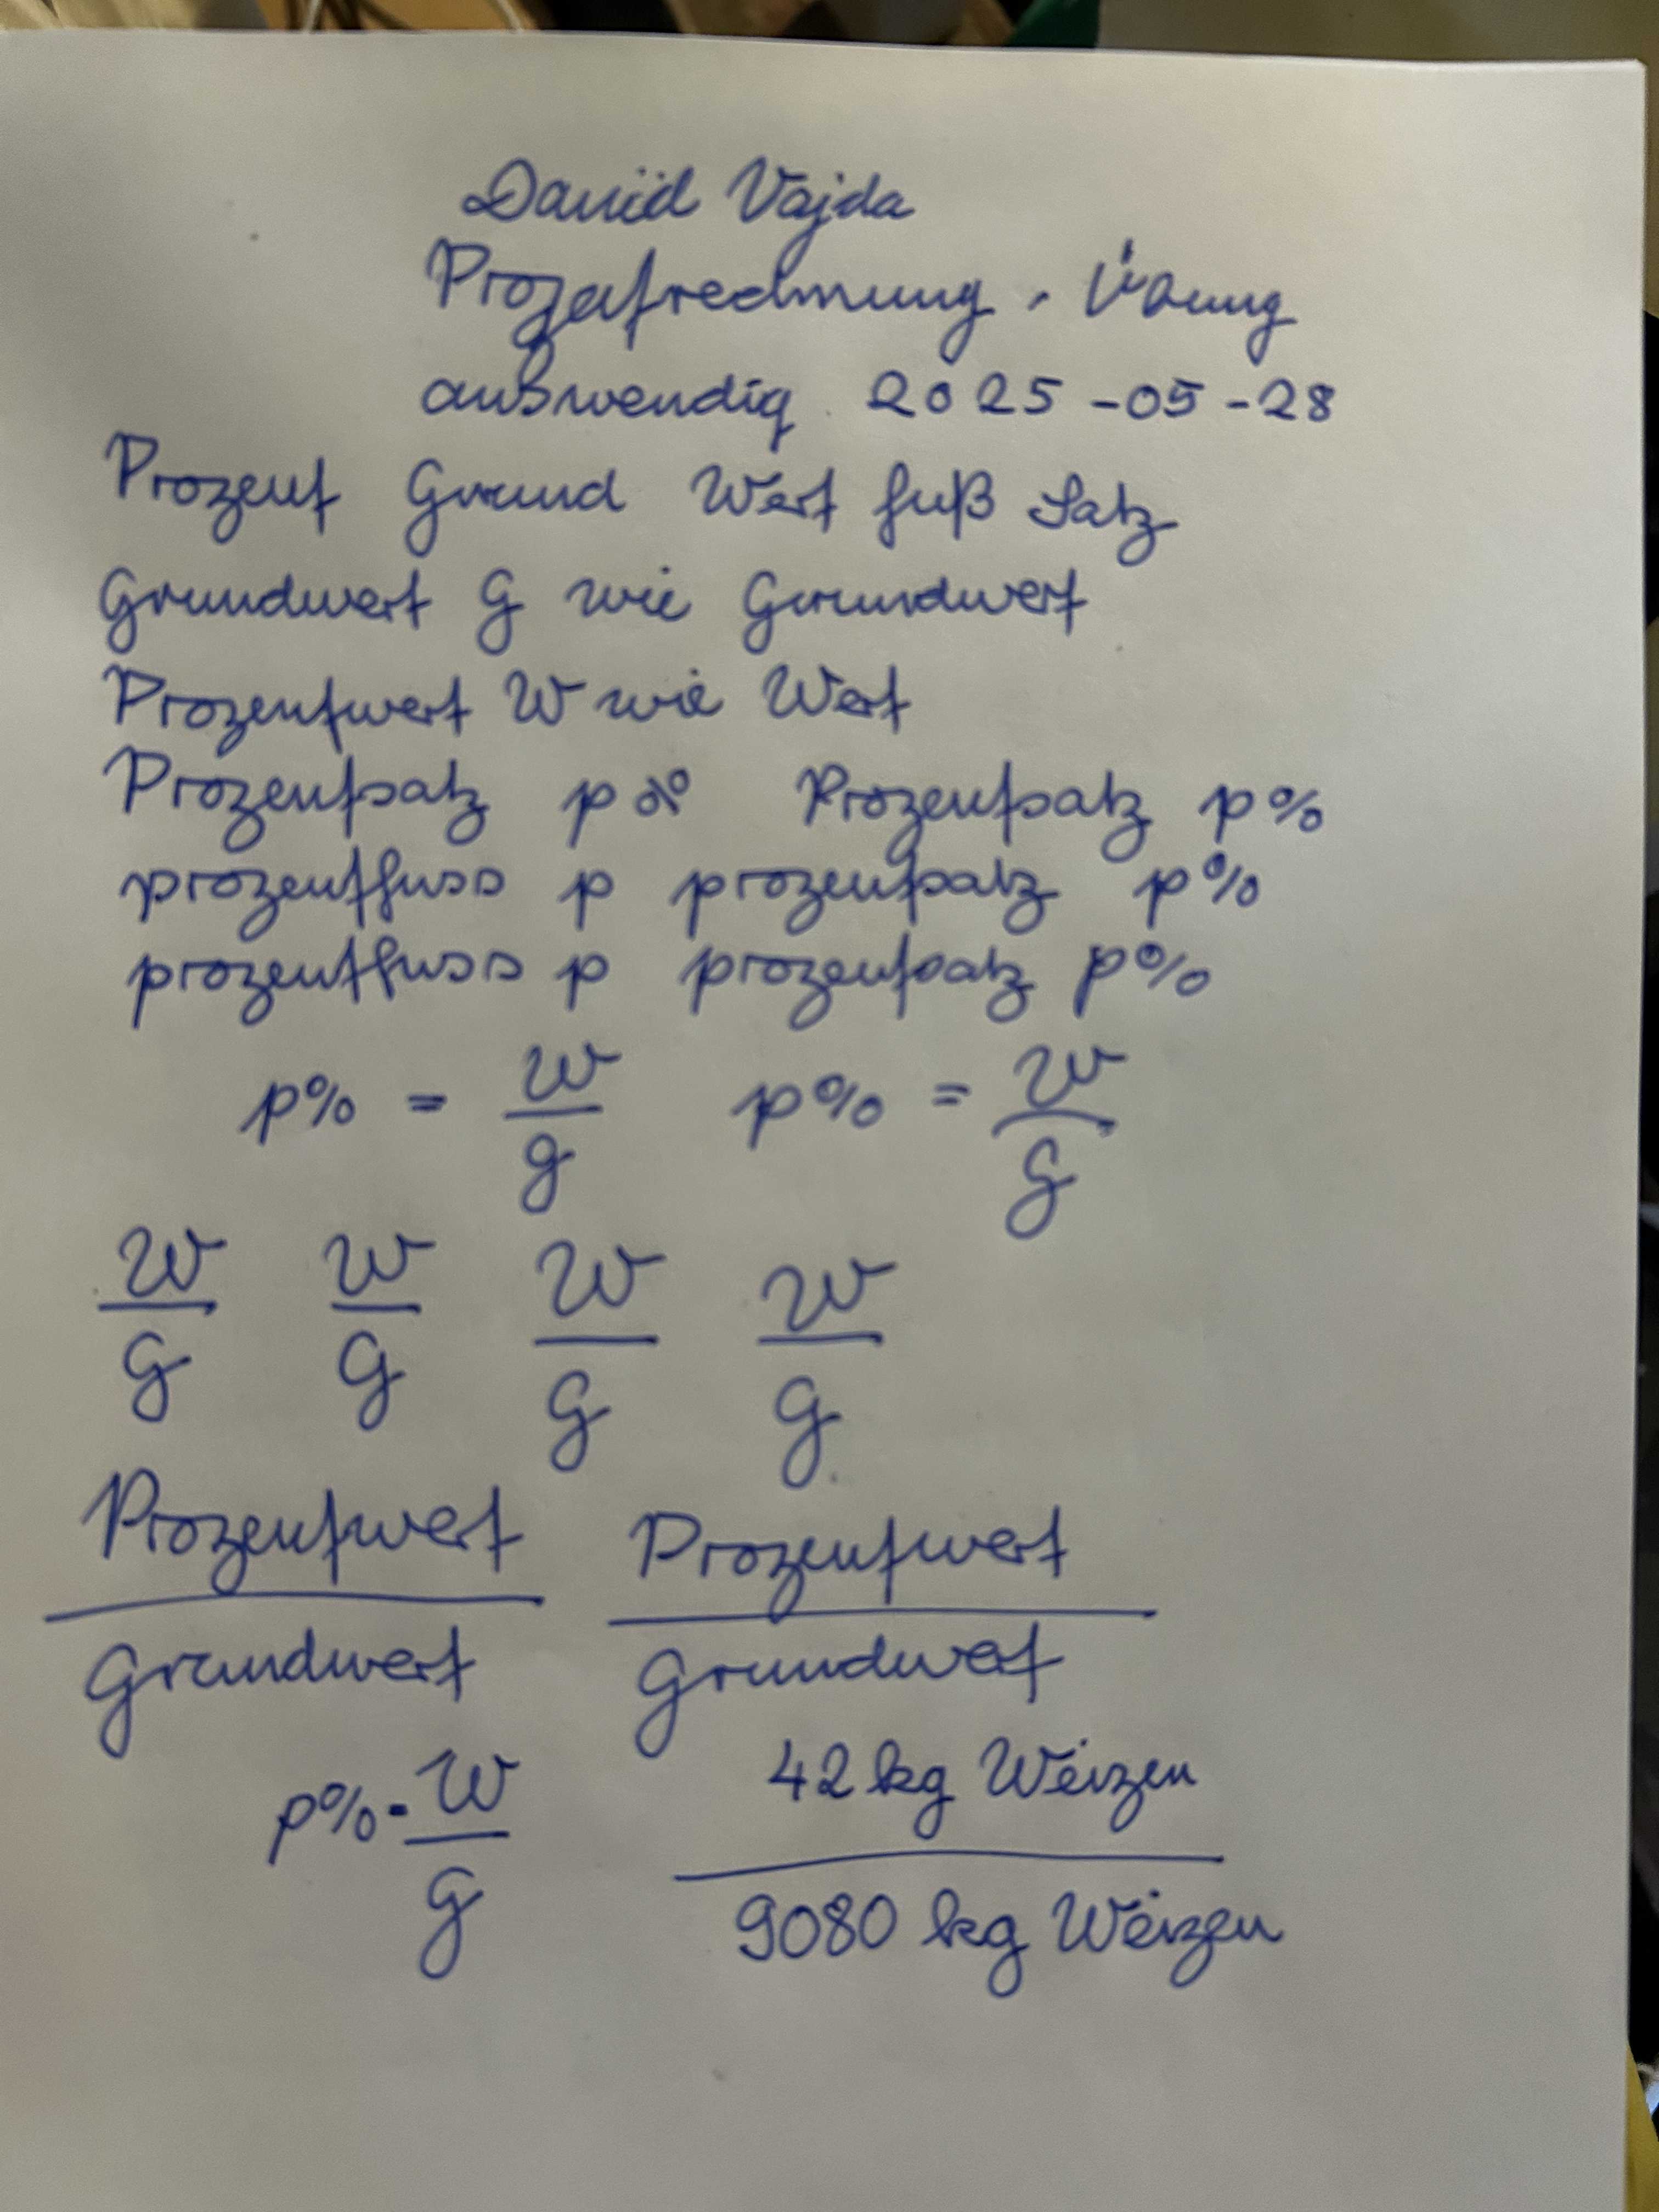 David Vajda
Prozentrechnung, Übung
außwendig 2025-05-28
Prozent Grund Wert fuß Satz
Grundwert G wie Grundwert
Prozentwert W wie Wert
Prozentsatz p% Prozentsatz p%
prozentfuss p prozentsatz p%
prozentfuss p prozentsatz p%
p% = W/G p% = W/G
W/G W/G W/G W/G
Prozentwert Prozentwert
Grundwert Grundwert
p% = W/G 42 kg Weizen
9080 kg Weizen